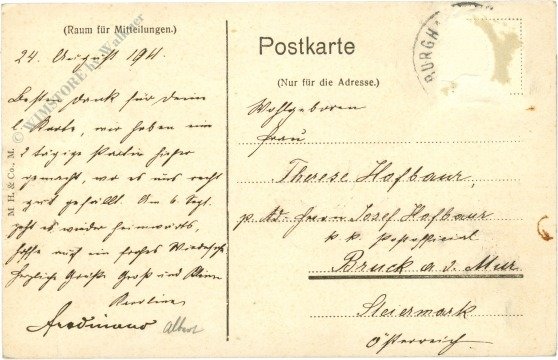 (Raum für Mitteilungen.)
24. August 1911.
Besten Dank für Deine
l. Karte, wir haben eine
2 tägige Partie hieher
gemacht, wo es uns recht
gut gefällt. Am 6. Sept.
geht es wieder heimwärts,
hoffe auf ein frohes Wiedersehn
Herzliche Grüße Groß und Klein
Karoline
Albert
M. H. & Co., M.
© WIMSTORE I. Wallner
BURGH
Postkarte
(Nur für die Adresse.)
Wohlgeboren
Frau
Therese Hofbaur,
p. Ad. Herrn Josef Hofbaur
k. k. Postofficial
Bruck a. d. Mur
Steiermark
Österreich